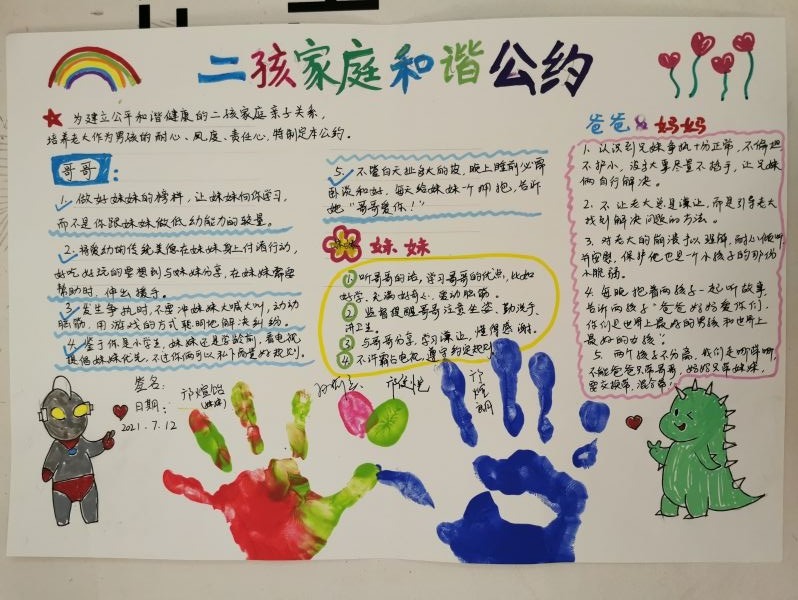 二孩家庭和谐公约
为建立公平和谐健康的二孩家庭亲子关系,
培养老大作为男孩的耐心、风度、责任心,特制定本公约。
哥哥:
1. 做好妹妹的榜样,让妹妹向你学习,
而不是你跟妹妹做低幼能力的较量。
2. 将爱幼的传统美德在妹妹身上付诸行动,
好吃好玩的要想到与妹妹分享,在妹妹需要
帮助时,伸出援手。
3. 发生争执时,不要冲妹妹大喊大叫,动动
脑筋,用游戏的方式聪明地解决纠纷。
4. 鉴于你是小学生,妹妹还是学龄前,看电视
提倡妹妹优先,不过你俩可以私下商量好规则。
5. 不管白天扯多大的皮,晚上睡前必需
卧谈和好,每天给妹妹一个拥抱,告诉
她“哥哥爱你!”
妹妹
1 听哥哥的话,学习哥哥的优点,比如
好学、充满好奇心、爱动脑筋。
2 监督提醒哥哥注意坐姿、勤洗手、
讲卫生。
3 与哥哥分享,学习谦让,懂得感谢。
4 不许霸占电视,遵守约定规则
爸爸&妈妈
1. 认识到兄妹争执十分正常,不偏袒
不护小,没大事尽量不插手,让兄妹
俩自行解决。
2. 不让老大总是谦让,而是引导老大
找到解决问题的方法。
3. 对老大的崩溃予以理解,耐心倾听
并安慰,保护他也是一个小孩子的那份
小脆弱。
4. 每晚抱着两孩子一起听故事,
告诉两孩子“爸爸妈妈爱你们,
你们是世界上最好的男孩和世界上
最好的女孩”。
5. 两个孩子不分离,我们是
不能爸爸只带哥哥,妈妈只带妹妹,
要交换带,混合带!
签名:
日期:
2021.7.12